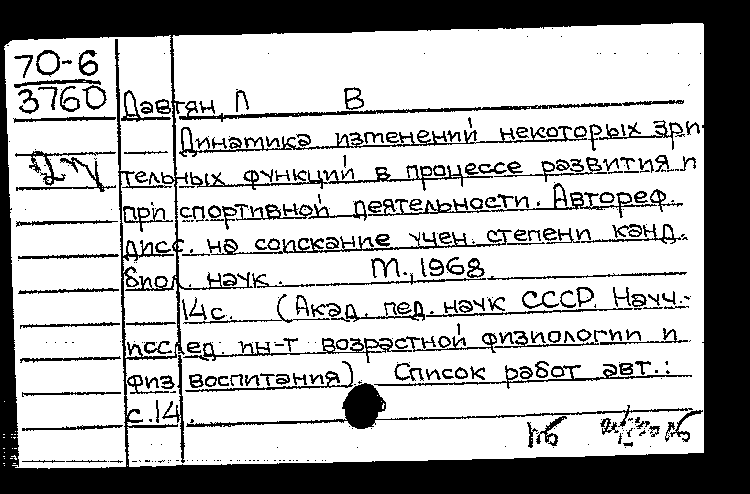 70-6
3760
Давтян, Л В
Динамика изменений некоторых зри-
тельных функций в процессе развития и
при спортивной деятельности. Автореф.
дисс. на соискание учен. степени канд.
биол наук. М., 1968.
14с. (Акад. пед. наук СССР. Науч.-
исслед. ин-т возрастной физиологии и
физ воспитания). Список работ авт.:
с.14.